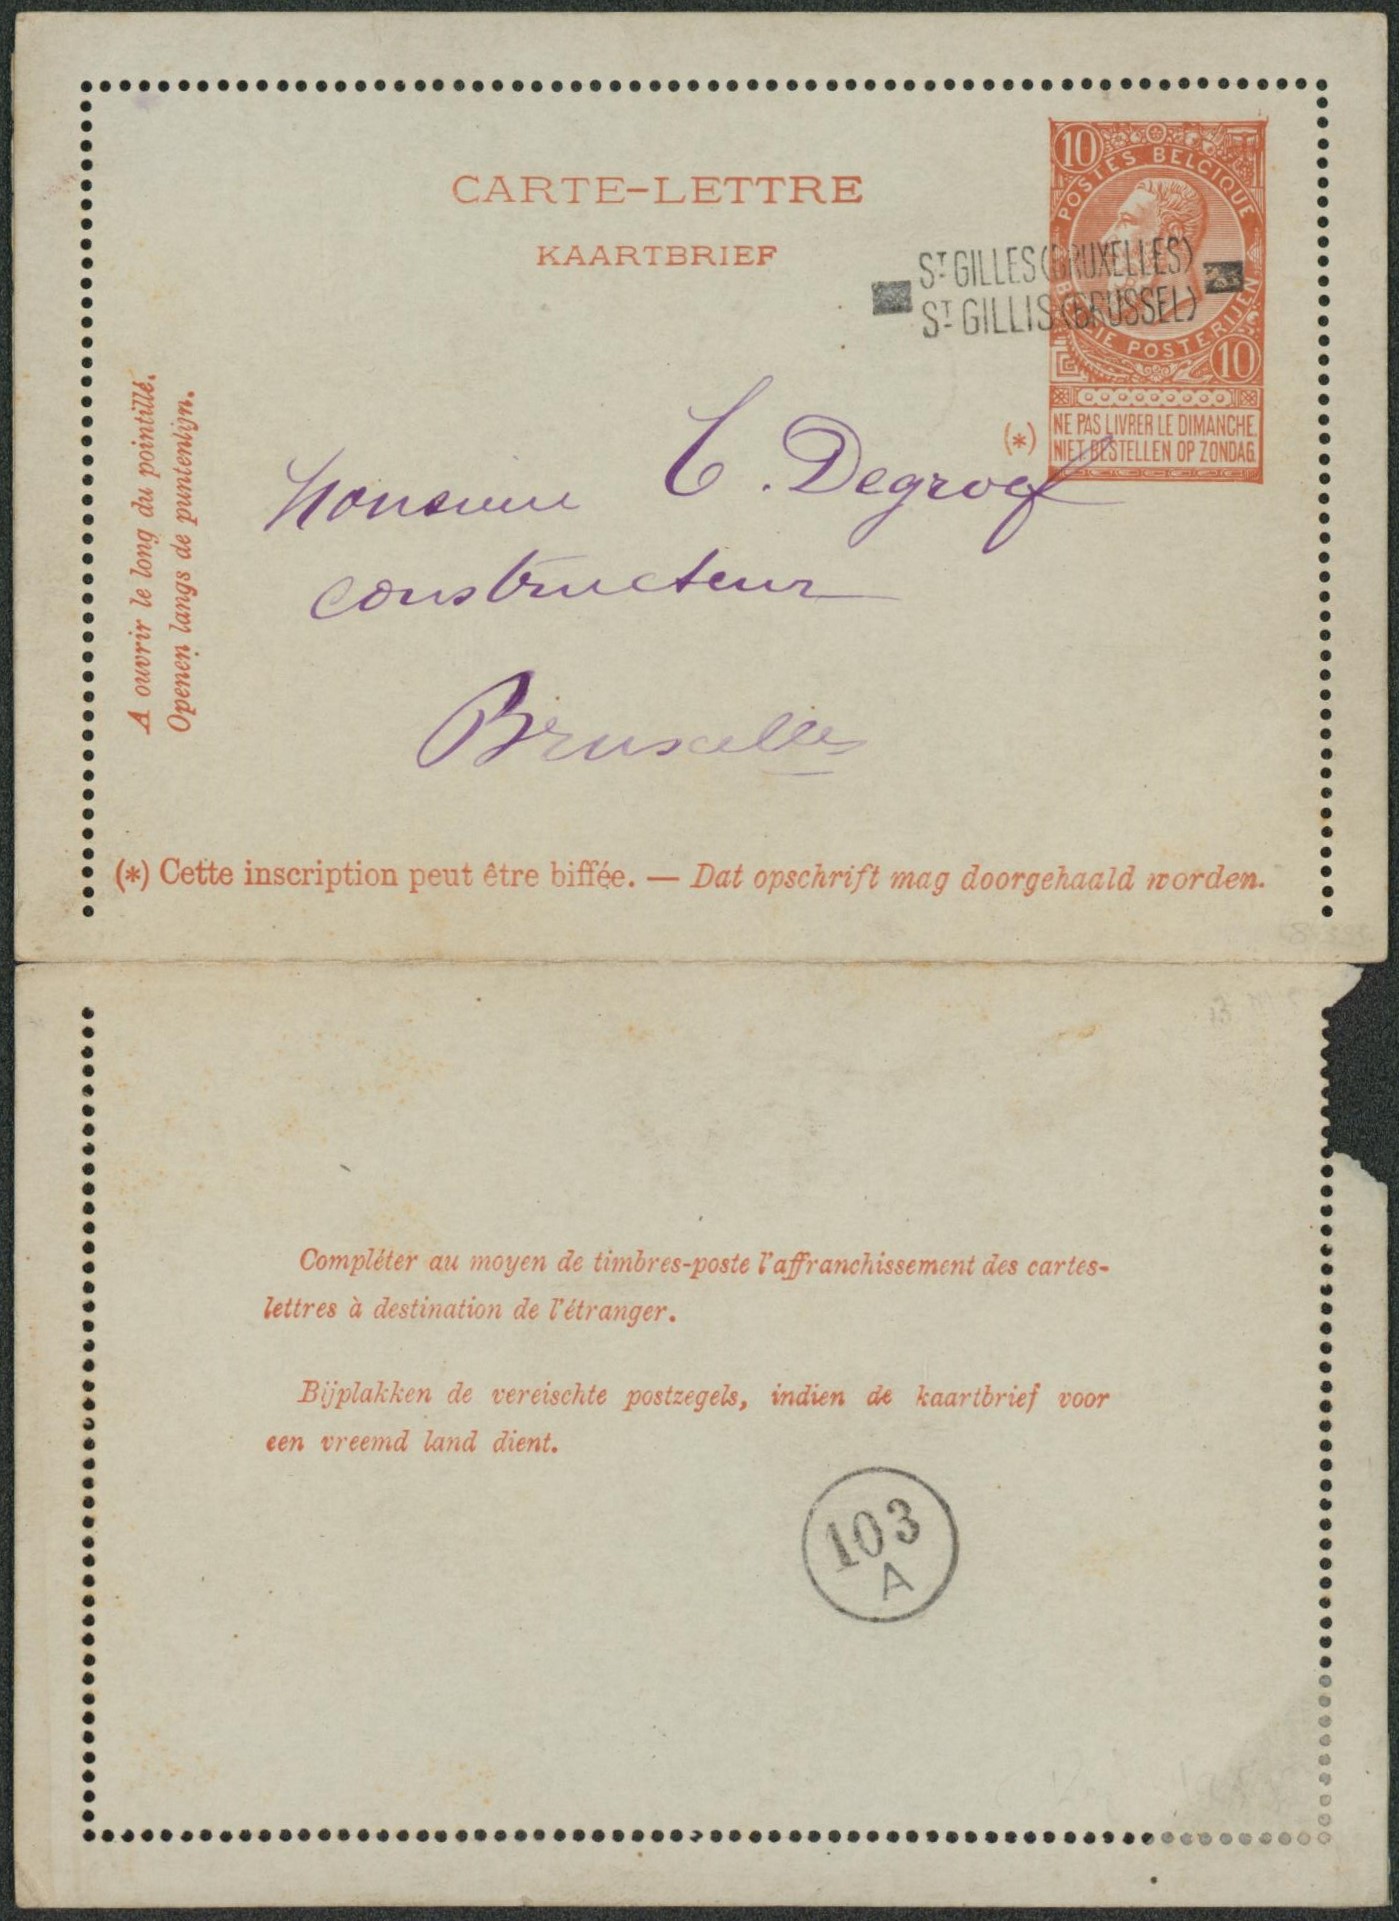 CARTE-LETTRE
KAARTBRIEF
10
POSTES BELGIQUE
BELGIE POSTERIJEN
10
ST GILLES (BRUXELLES)
ST GILLIS (BRUSSEL)
(*)
NE PAS LIVRER LE DIMANCHE.
NIET BESTELLEN OP ZONDAG.
A ouvrir le long du pointillé.
Openen langs de puntenlijn.
Monsieur C. Degroef
constructeur
Bruxelles
(*) Cette inscription peut être biffée. — Dat opschrift mag doorgehaald worden.
Compléter au moyen de timbres-poste l'affranchissement des cartes-
lettres à destination de l'étranger.
Bijplakken de vereischte postzegels, indien de kaartbrief voor
een vreemd land dient.
103
A